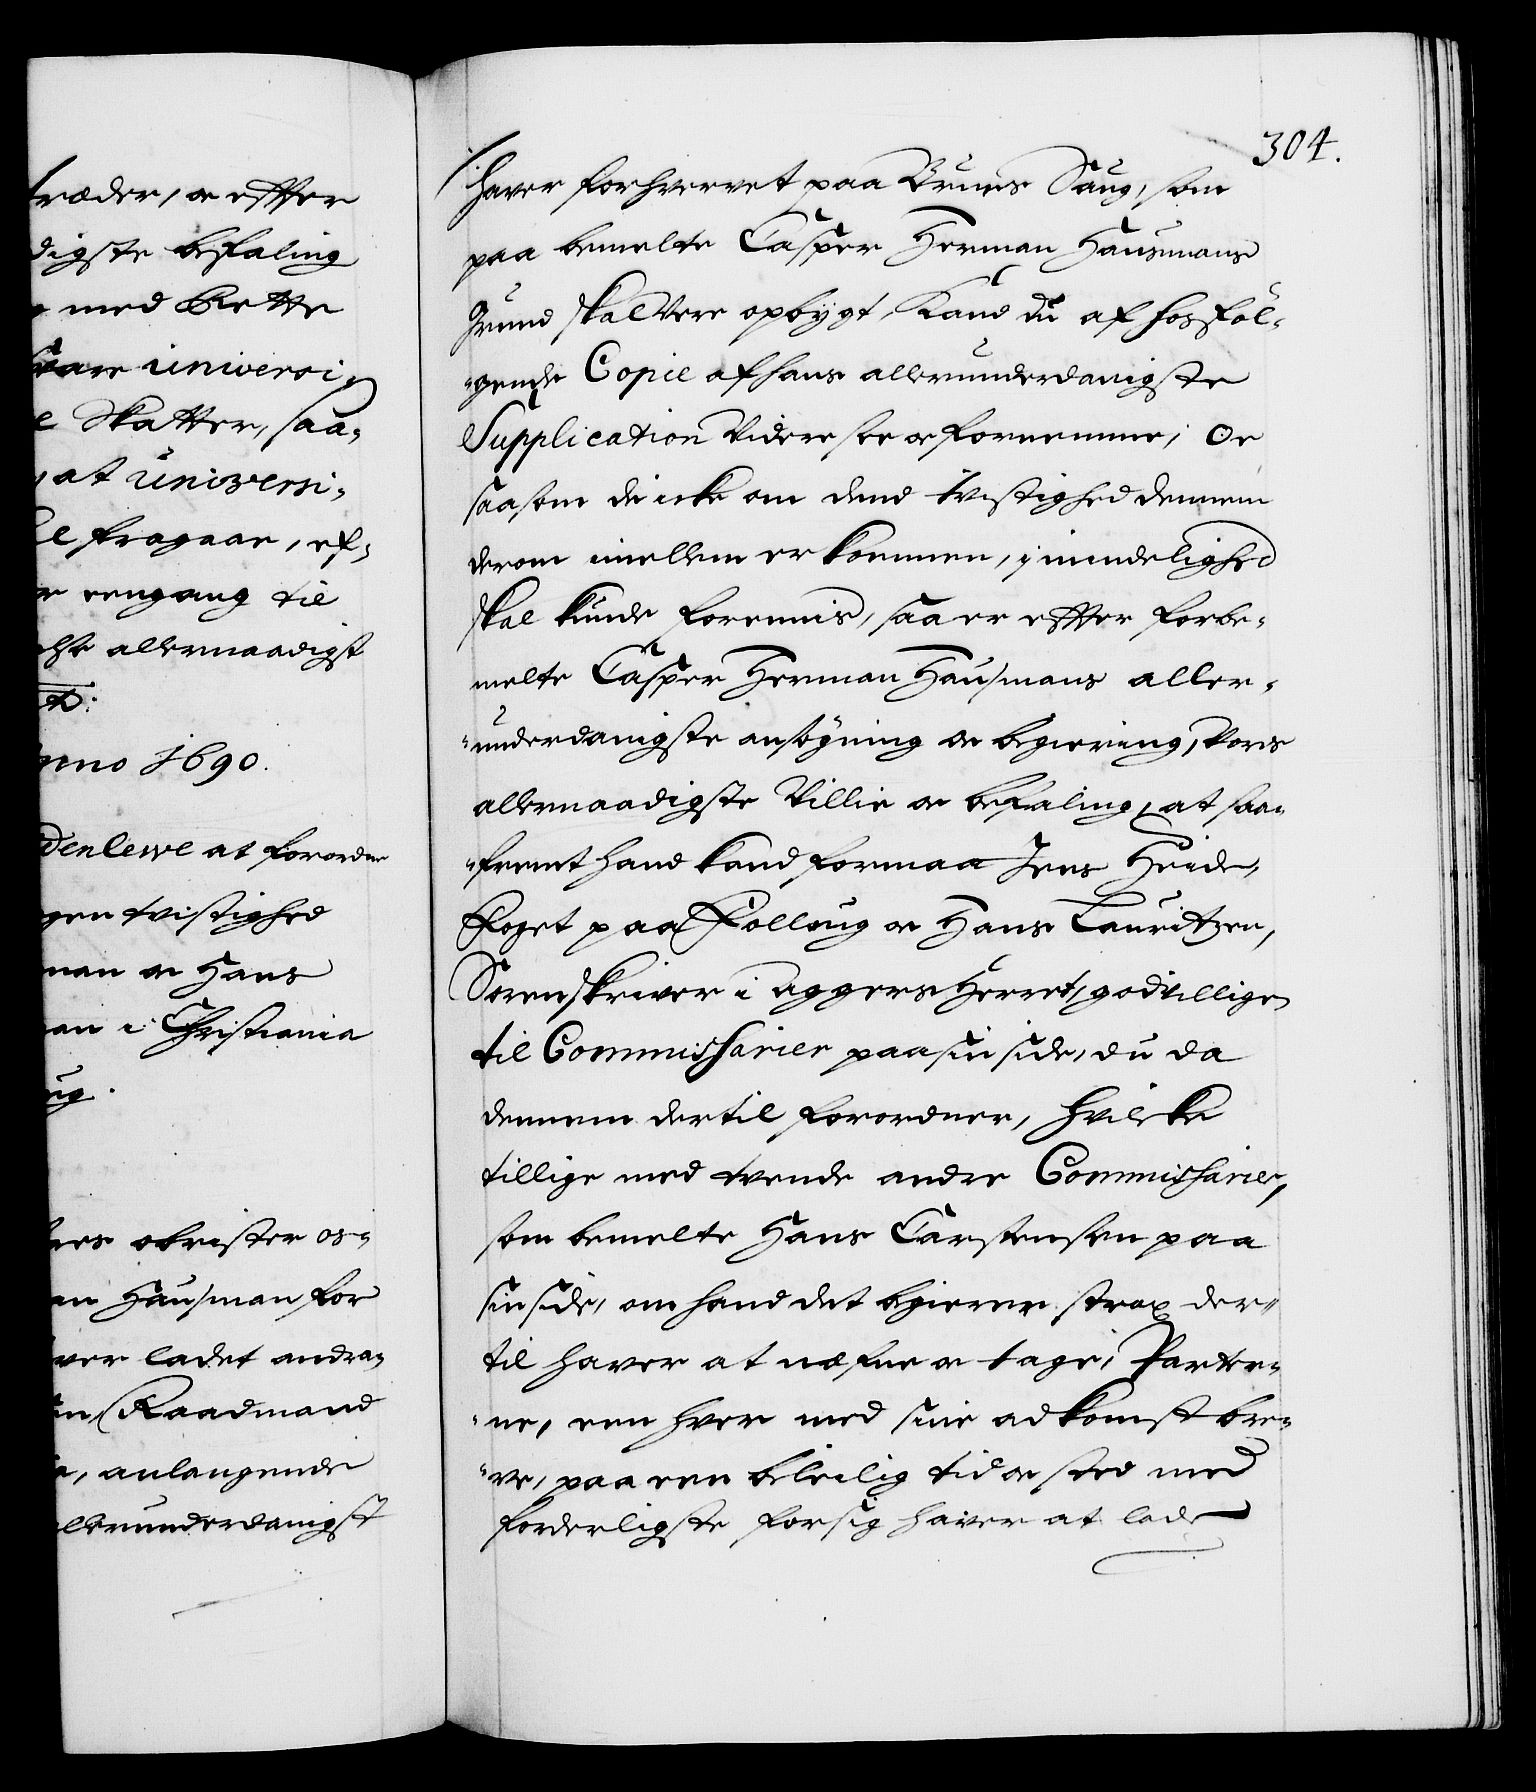 træder, oc effter
digste befaling
med Rette
svare universi-
e Skatter, saa-
, at universi-
fragaae, ef-
eengang til
allernaadigst
Anno 1690.
denlewe at forordne
gen tvistighed
man oc Hans
an i Christiania
ug.
obrister os-
an Hausman for
ver ladet andra-
Raadmand
, anlangende
allerunderdanigst
304.
haver forhvervet paa Bruns Saug, som
paa bemelte Casper Herman Hausmans
Grund skal Vere opbygt, Kand du af hosföl-
-gende Copie af hans allerunderdanigste
Supplication Videre see oc fornemme; Oc
saasom de icke om dend tvistighed dennem
derom imellem er kommen, i mindelighed
skal kunde foreenis, saa er effter forbe-
melte Casper Herman Hausmans aller-
-underdanigste ansögning oc begiering, Vores
allernaadigste Villie oc befaling, at saa-
-fremt hand kand formaa Jens Heide,
Foget paa Follaug oc Hans Lauritzen,
Sorenskriver i Aggers Herret, godvillige
til Commissarier paa sin side, du da
dennem dertil forordner, hvilcke
tillige med tvende andre Commissarier,
som bemelte Hans Carstensen paa
sin side, om hand det begierer strax der-
til haver at næfne oc tage, Parter-
-ne, een hver med sine adkomst bre-
-ve, paa een beleilig tid oc sted med
forderligste for sig haver at lade